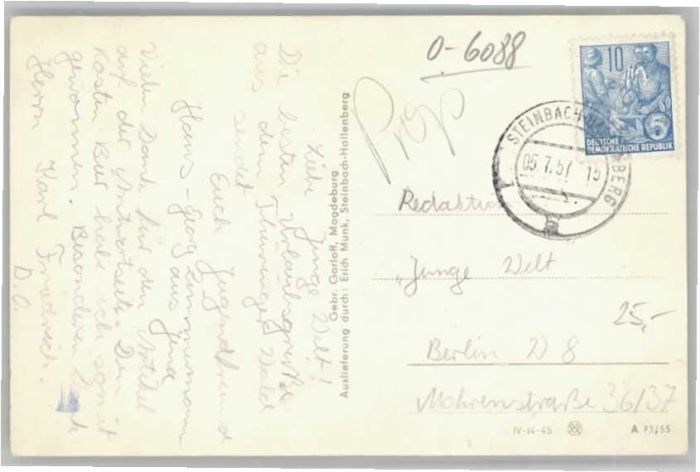 0-6088
10
5
DEUTSCHE
DEMOKRATISCHE REPUBLIK
05.7.57
Liebe Junge Welt!
Die besten Urlaubsgrüße
aus dem Thüringer Wald
sendet
Euch Jugendfreund
Hans-Georg Zimmermann
aus Jena
Vielen Dank für den Artikel
auf der Antwortseite. Den
Kasten Bier habe ich somit
gewonnen. Besonderen Dank
Herrn Karl Friedrich.
D.O.
Gebr. Garloff, Magdeburg
Auslieferung durch: Erich Munk, Steinbach-Hallenberg
Redaktion
„Junge Welt
Berlin W 8
Mohrenstraße 36/37
25,-
IV-14-45
A 73/55